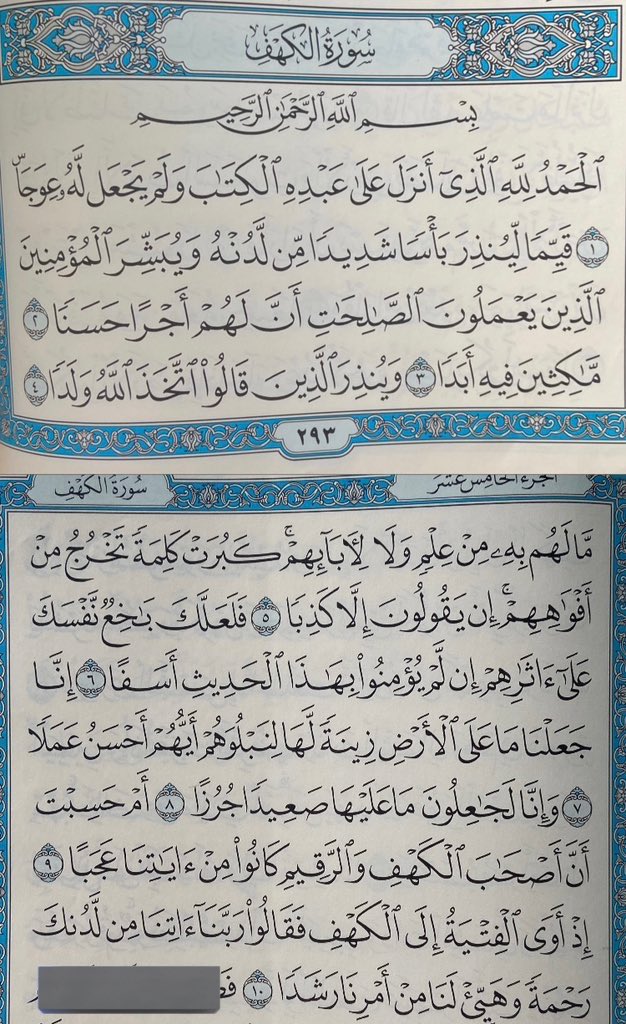 سُورَةُ الكَهْفِ
بِسْمِ ٱللَّهِ ٱلرَّحْمَٰنِ ٱلرَّحِيمِ
ٱلْحَمْدُ لِلَّهِ ٱلَّذِىٓ أَنزَلَ عَلَىٰ عَبْدِهِ ٱلْكِتَٰبَ وَلَمْ يَجْعَل لَّهُۥ عِوَجَاۜ
١ قَيِّمًا لِّيُنذِرَ بَأْسًا شَدِيدًا مِّن لَّدُنْهُ وَيُبَشِّرَ ٱلْمُؤْمِنِينَ
ٱلَّذِينَ يَعْمَلُونَ ٱلصَّٰلِحَٰتِ أَنَّ لَهُمْ أَجْرًا حَسَنًا ٢
مَّٰكِثِينَ فِيهِ أَبَدًا ٣ وَيُنذِرَ ٱلَّذِينَ قَالُوا۟ ٱتَّخَذَ ٱللَّهُ وَلَدًا ٤
٢٩٣
الجزء الخامس عشر
سُورَةُ الكَهْفِ
مَّا لَهُم بِهِۦ مِنْ عِلْمٍ وَلَا لِـَٔابَآئِهِمْ ۚ كَبُرَتْ كَلِمَةً تَخْرُجُ مِنْ
أَفْوَٰهِهِمْ ۚ إِن يَقُولُونَ إِلَّا كَذِبًا ٥ فَلَعَلَّكَ بَٰخِعٌ نَّفْسَكَ
عَلَىٰٓ ءَاثَٰرِهِمْ إِن لَّمْ يُؤْمِنُوا۟ بِهَٰذَا ٱلْحَدِيثِ أَسَفًا ٦ إِنَّا
جَعَلْنَا مَا عَلَى ٱلْأَرْضِ زِينَةً لَّهَا لِنَبْلُوَهُمْ أَيُّهُمْ أَحْسَنُ عَمَلًا
٧ وَإِنَّا لَجَٰعِلُونَ مَا عَلَيْهَا صَعِيدًا جُرُزًا ٨ أَمْ حَسِبْتَ
أَنَّ أَصْحَٰبَ ٱلْكَهْفِ وَٱلرَّقِيمِ كَانُوا۟ مِنْ ءَايَٰتِنَا عَجَبًا ٩
إِذْ أَوَى ٱلْفِتْيَةُ إِلَى ٱلْكَهْفِ فَقَالُوا۟ رَبَّنَآ ءَاتِنَا مِن لَّدُنكَ
رَحْمَةً وَهَيِّئْ لَنَا مِنْ أَمْرِنَا رَشَدًا ١٠